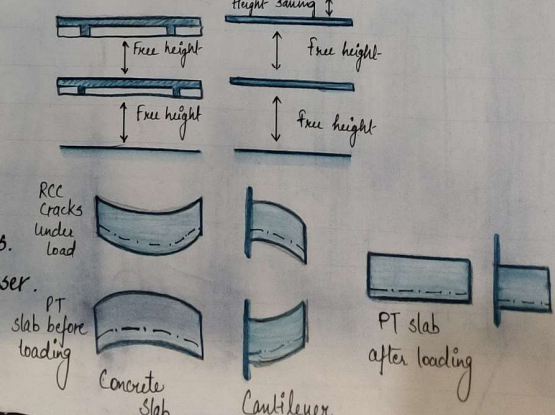 Height saving
Free height
Free height
Free height
Free height
RCC
cracks
under
load
s.
ser.
PT
slab before
loading
PT slab
after loading
Concrete
slab
Cantilever